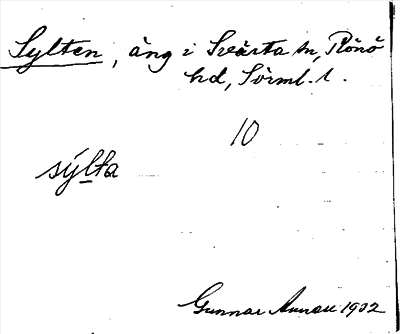 Sylten, äng i Svärta sn, Rönö
hd, Sörml. l.
10
sýlta
Gunnar 1902